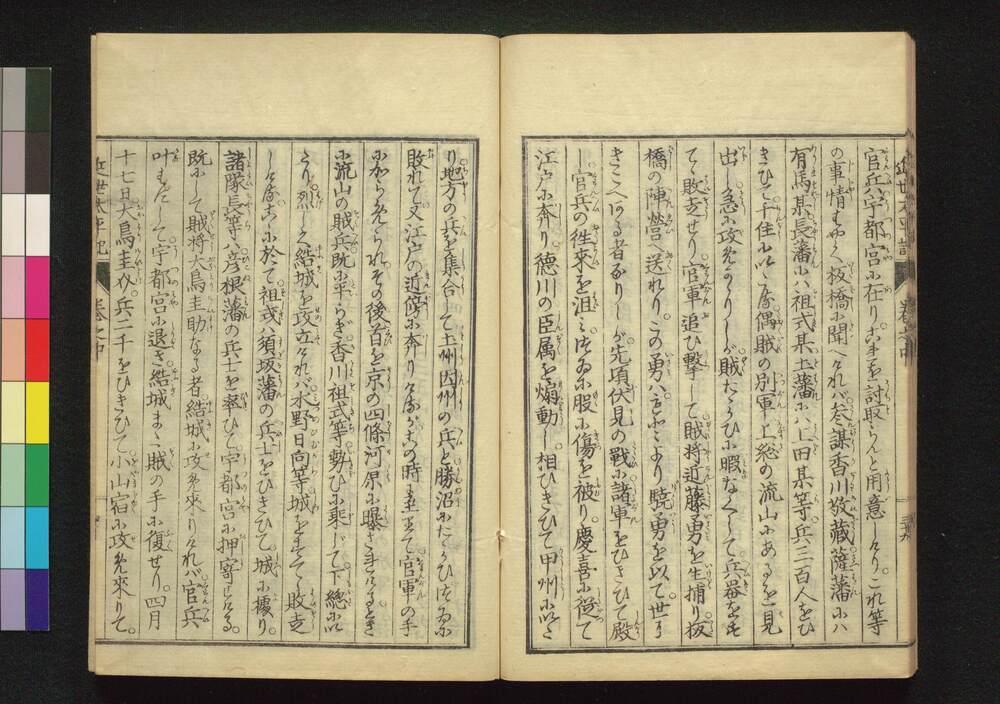 官兵ハ宇都宮に在り。これを討取らんと用意しけり。これ等
の事情もやく板橋に聞へけれバ参謀香川敬藏薩藩にハ
有馬某長藩ハ祖式某土藩にハ上田某等兵三百人をひ
きひて千住にいく偶賊の別軍上総の流山にあるを一見
出し急に攻かゝりしが賊たゝかひに暇なくして兵器を
てゝ敗走せり。官軍追ひ撃して賊将近藤勇を生捕り。板
橋の陣営へ送れり。この勇ハもとより驍勇を以て世に
きこへける者なりしが先頃伏見の戦に諸軍をひきひて殿
し。官兵の往來を沮ミつゐに股に傷を被り。慶喜に従て
江戸に奔り。德川の臣属を煽動し。相ひきひて甲州にいた
り地方の兵を集合して土州因州の兵と勝沼にたゝかひつゐに
敗れて又江戸の近傍に奔りけるがこの時至て官軍の手
にからめられその後首を京の四條河原に曝されけるとき
に流山の賊兵既に平らぎ香川祖式等勢ひに乗じて下總にい
たり。烈しく結城を攻立けれバ水野日向等城をすてゝ敗走
しけるこゝに於て祖式ハ須坂藩の兵士をひきひて。城に據り。
諸隊長等ハ彦根藩の兵士を率ひて。宇都宮に押寄ける。
既にして賊将大鳥圭助なる者。結城に攻め來りけれバ官兵
叶はずして宇都宮に退き結城また賊の手に復せり。四月
十七日大鳥圭介。兵二千をひきひて。小山宿に攻め來りて。
近世太平記
巻之中